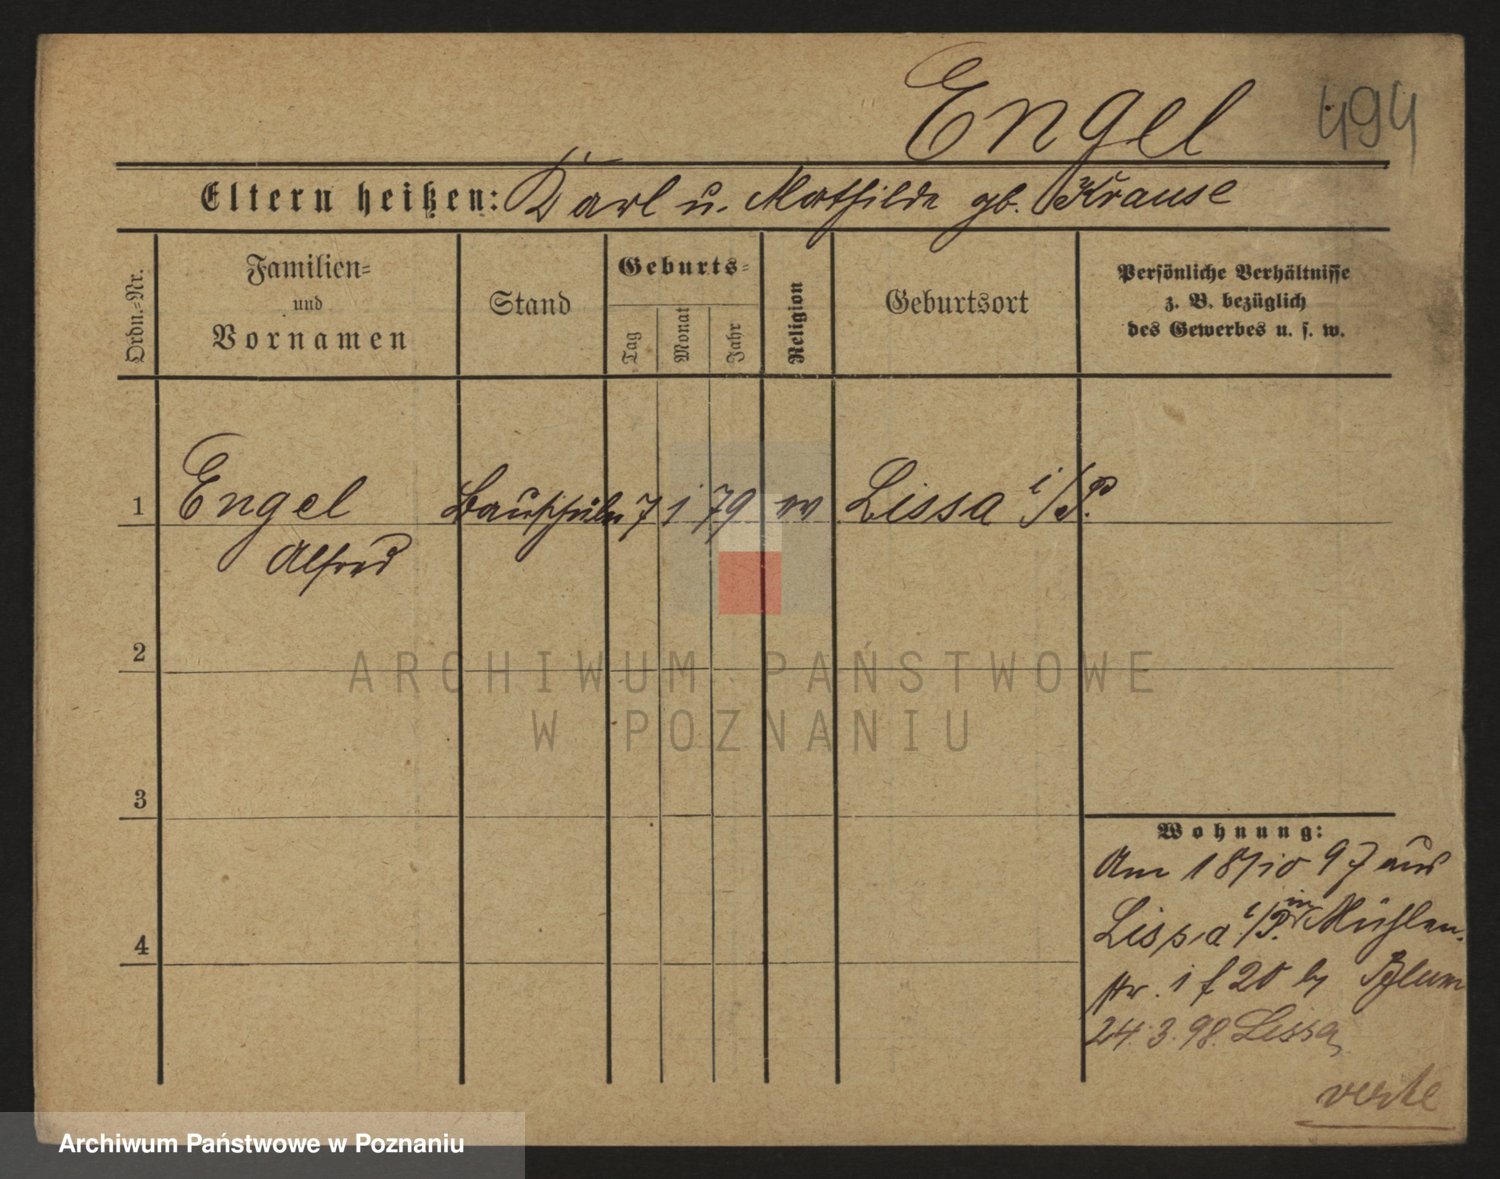 Engel 494
Eltern heißen: Karl u. Mathilde gb. Krause
Ordn.-Nr.
Familien-
und
Vornamen
Stand
Geburts-
Tag
Monat
Jahr
Religion
Geburtsort
Persönliche Verhältnisse
z. B. bezüglich
des Gewerbes u. s. w.
1 Engel Bauschüler 7 1 79 ev Lissa i/P.
Alfred
2
3
4
Wohnung:
Am 18/10 97 aus
Lissa i/P. in Mühlen-
str. 20 Blum
24.3.98. Lissa
verte
ARCHIWUM PAŃSTWOWE
W POZNANIU
Archiwum Państwowe w Poznaniu